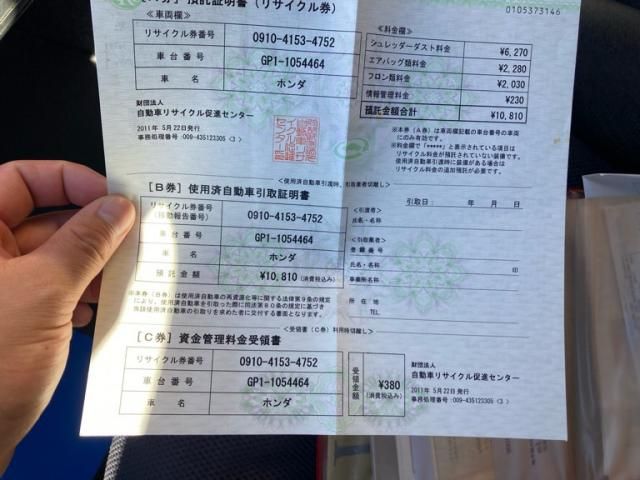 [A券] 預託証明書(リサイクル券)
0105373146
≪車両欄≫
リサイクル券番号 0910-4153-4752
車台番号 GP1-1054464
車名 ホンダ
≪料金欄≫
シュレッダーダスト料金 ¥6,270
エアバッグ類料金 ¥2,280
フロン類料金 ¥2,030
情報管理料金 ¥230
預託金額合計 ¥10,810
財団法人
自動車リサイクル促進センター
2011年 5月22日発行
事務処理番号:009-435123305 〈3 〉
※本券(A券)は車両欄記載の車台番号の車両
にのみ有効です。
※料金欄で「*****」と表示されている項目は
リサイクル料金が預託されていない装備です。
使用済自動車引渡時に装備がある場合は
リサイクル料金の追加預託が必要です。
<使用済自動車引渡時、引取業者切離し>
[B券] 使用済自動車引取証明書
引取日: 年 月 日
リサイクル券番号
(移動報告番号) 0910-4153-4752
車台番号 GP1-1054464
車名 ホンダ
預託金額 ¥10,810 (消費税込み)
<引渡者>
氏名・名称
<引取業者>
登録番号
氏名・名称 印
事業所名称
所在地
TEL.
※本券(B券)は使用済自動車の再資源化等に関する法律第9条の規
定により、使用済自動車を引取った際に同法第80条の規定に基づき
当該使用済自動車の引取りを求めた者に交付する書面となります。
<受領書(C券)利用時切離し>
[C券] 資金管理料金受領書
リサイクル券番号 0910-4153-4752
車台番号 GP1-1054464
車名 ホンダ
受領金額 ¥380
(消費税込み)
財団法人
自動車リサイクル促進センター
2011年 5月22日発行
事務処理番号:009-435123305 〈3 〉